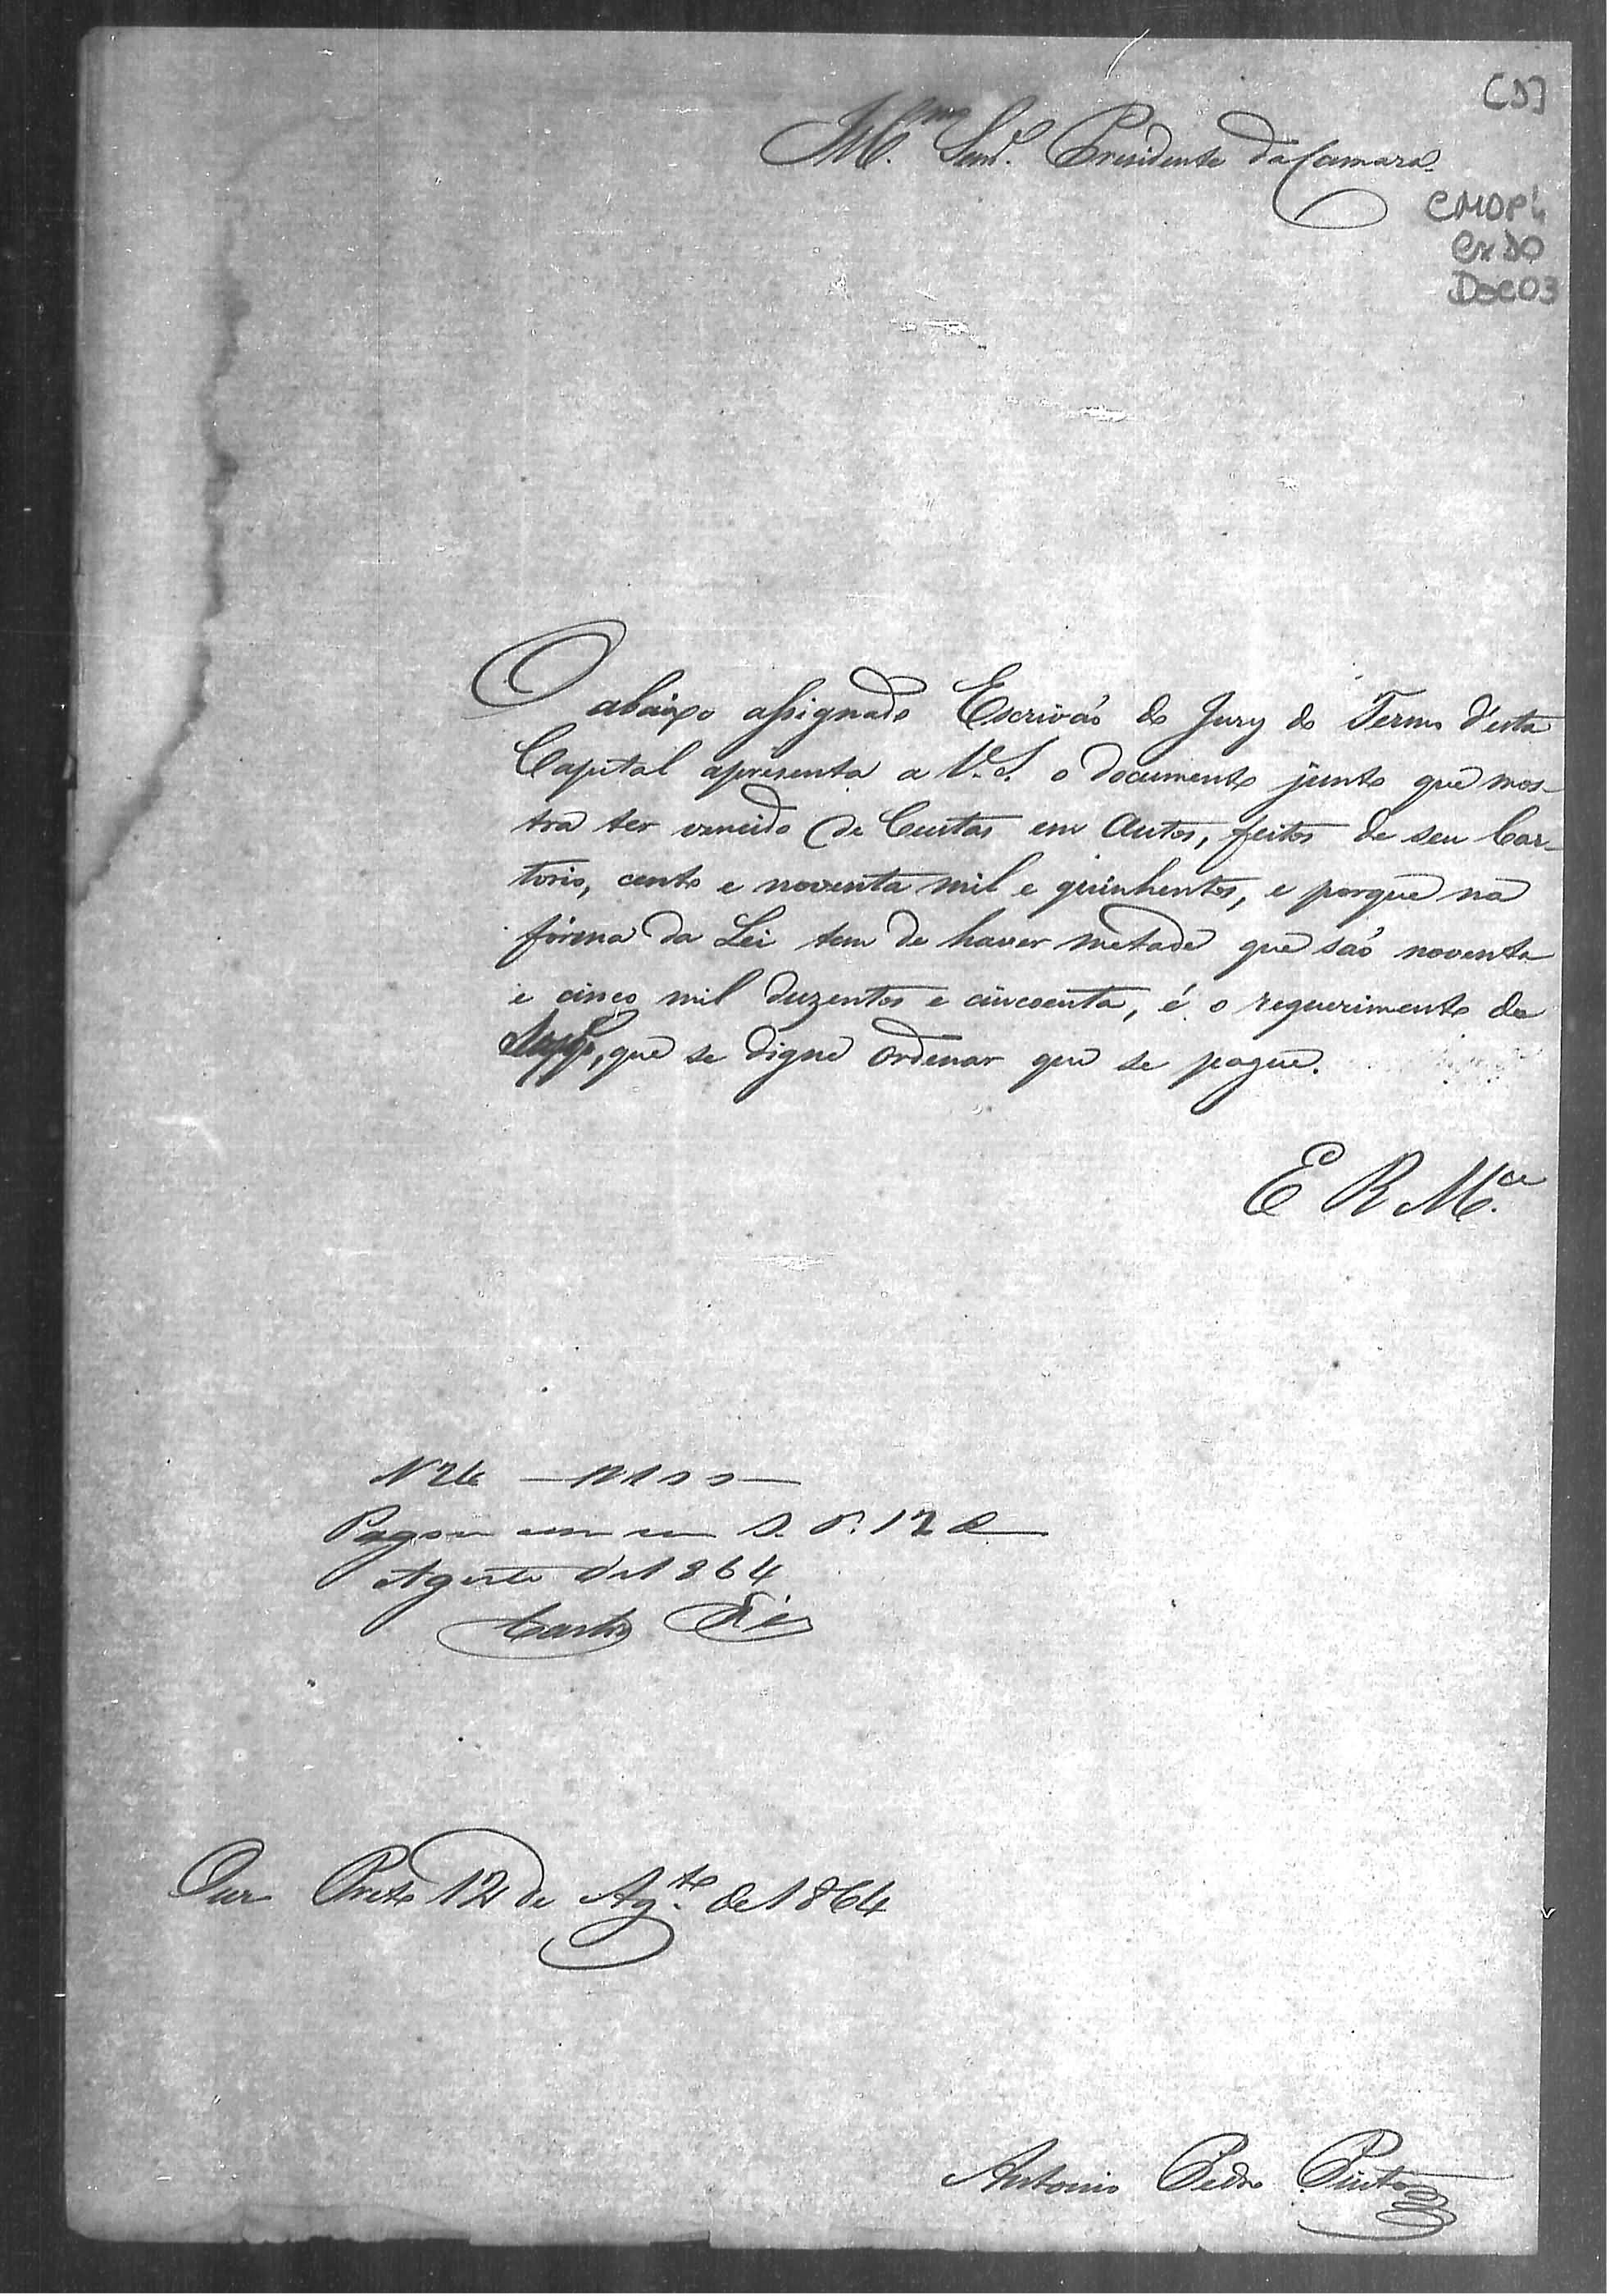 [D]
Ill.mo Senr. Presidente da Camara
CMOP
Cx 30
Doc 03
O abaixo assignado Escrivaõ do Jury do Termo d'esta
Capital apresenta a V.S. o documento junto que mos-
tra ter vencido de Custas em Autos, feitos de seu Car-
torio, cento e noventa mil e quinhentos, e porque na
fórma da Lei tem de haver metade que saõ noventa
e cinco mil duzentos e cincoenta, é o requerimento do
Suppe., que se digne ordenar que se pague.
E R M.ce
N 26
Agosto de 1864
Ouro Preto 12 de Ag.to de 1864
Antonio Pedro Pinto